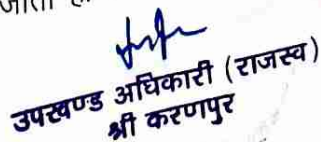 जाता है
उपखण्ड अधिकारी (राजस्व)
श्री करणपुर